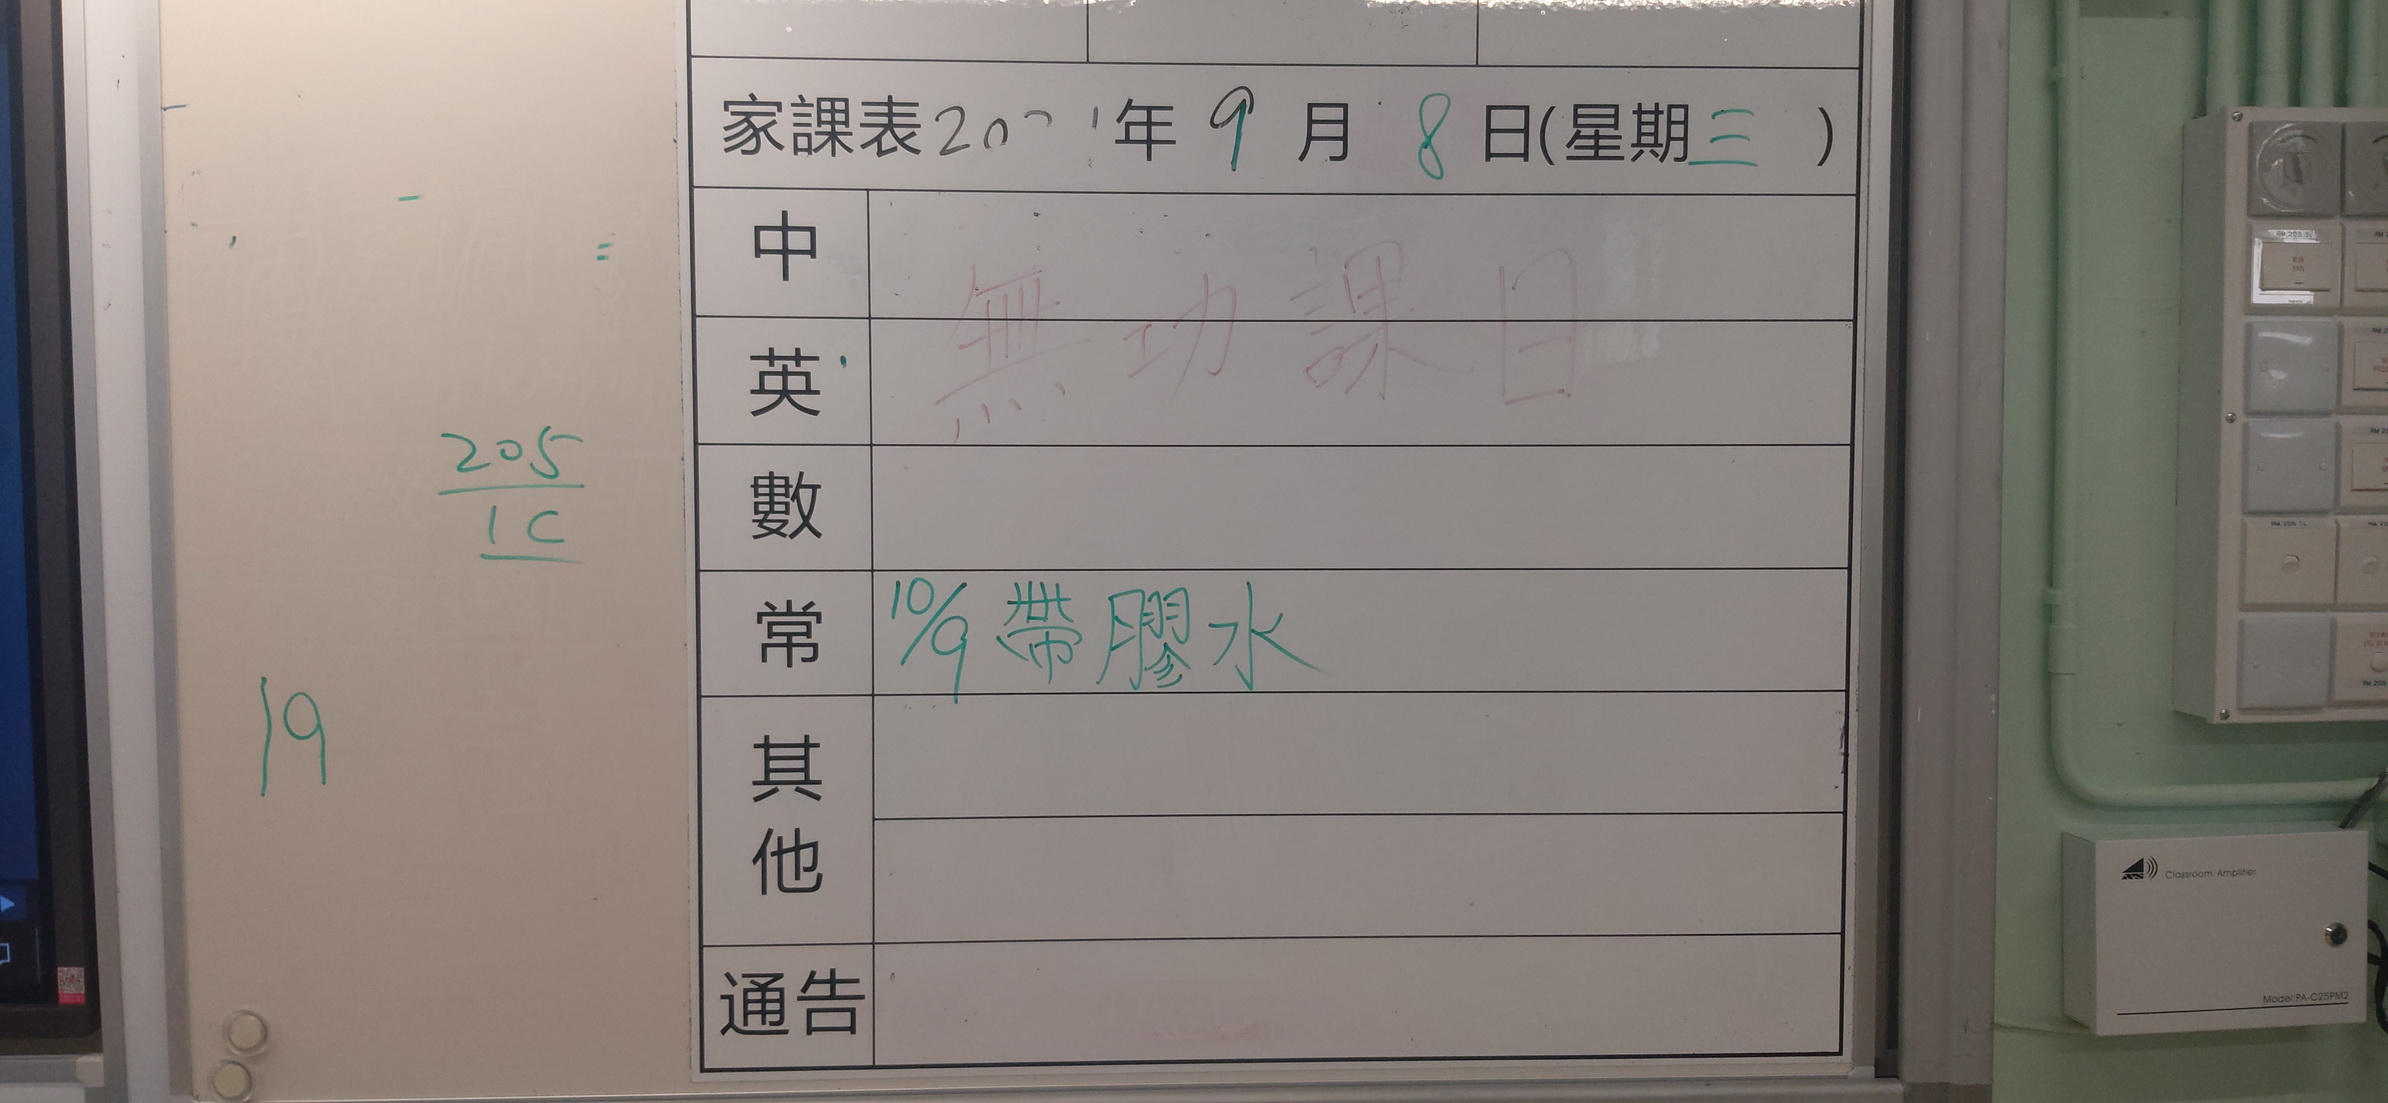 家課表2021年9月8日(星期三)
中
無功課日
英
數
常 10/9 帶膠水
其他
通告
205
1C
19
Classroom Amplifier
Model:PA-C25PM2